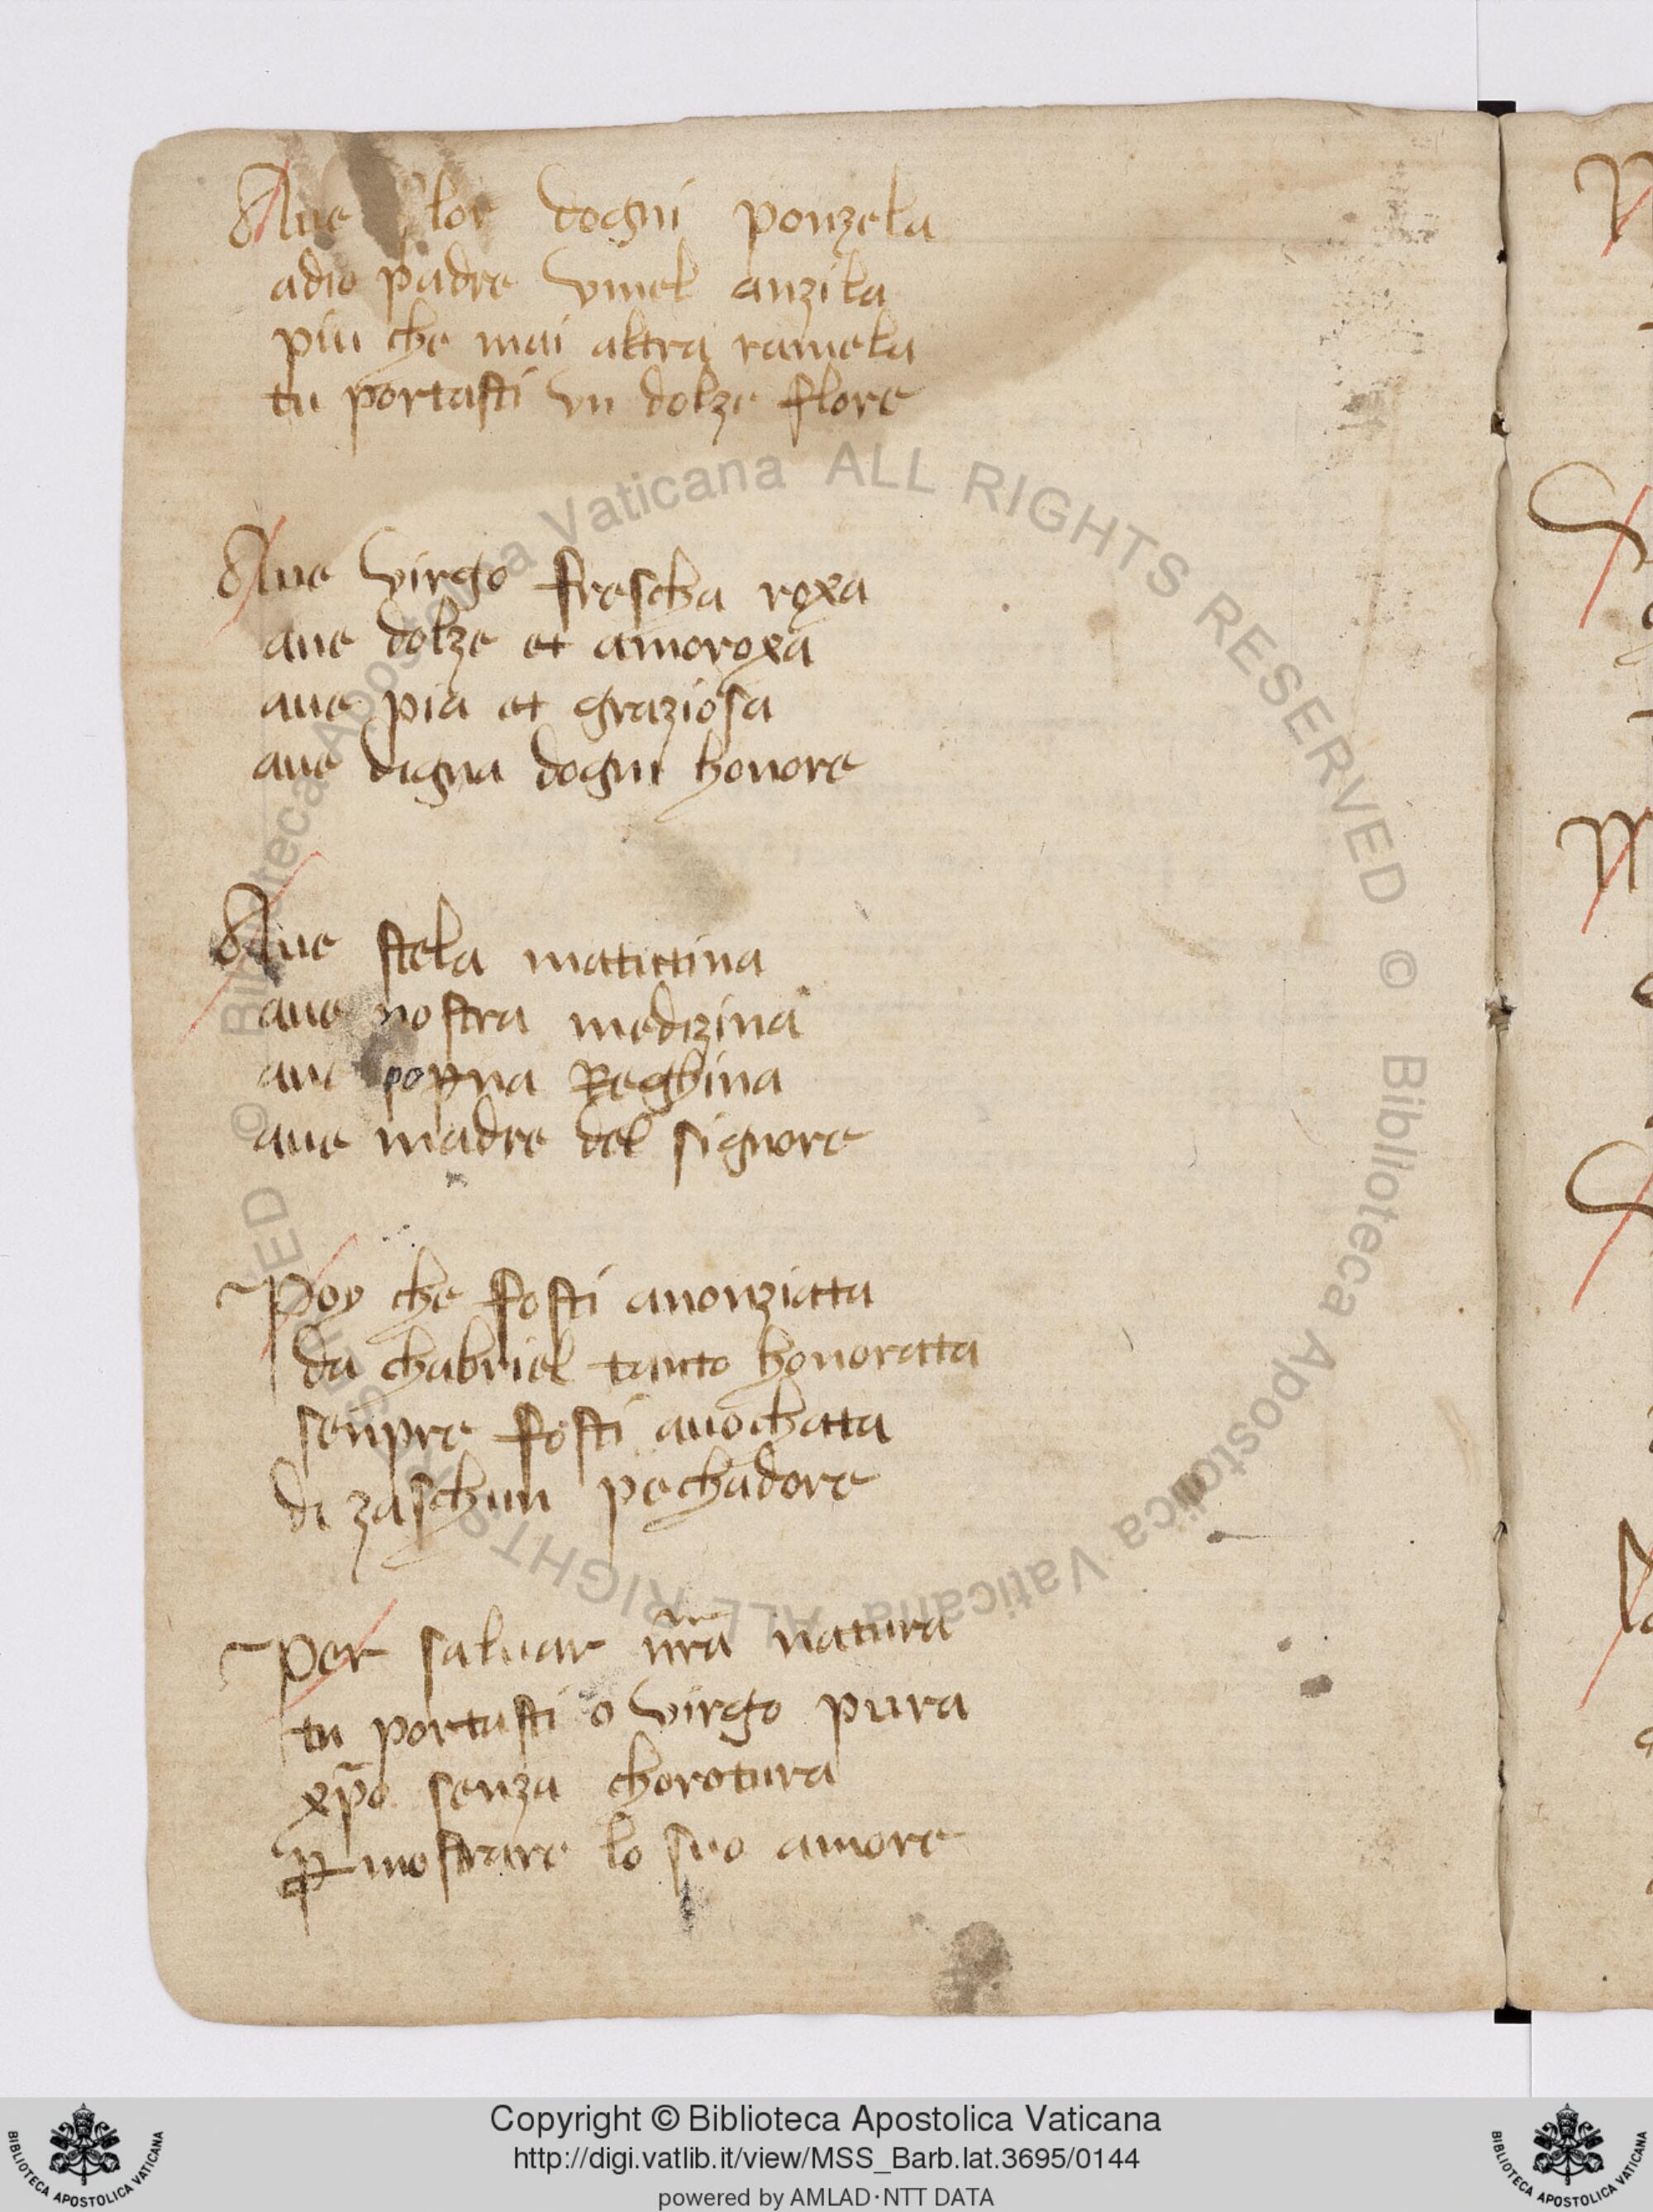 Aue flor dogni ponzela
adio padre vmel anzila
piu che mai altra ramela
tu portasti vn dolze flore
Aue virgo frescha roxa
aue dolze et amoroxa
aue pia et graziosa
aue digna dogni honore
Aue stela matutina
aue nostra medizina
aue Reghina
aue madre del signore
Poy che fosti anonziatta
da chabriel tanto honoratta
senpre fosti auochatta
di zaschun pechadore
Per saluar nr̃a natura
tu portasti o virgo pura
xp̃o senza chorotura
ꝑ mostrare lo suo amore
© Biblioteca Apostolica Vaticana ALL RIGHTS RESERVED © Biblioteca Apostolica Vaticana ALL RIGHTS RESERVED
Copyright © Biblioteca Apostolica Vaticana
http://digi.vatlib.it/view/MSS_Barb.lat.3695/0144
powered by AMLAD·NTT DATA
BIBLIOTECA APOSTOLICA VATICANA
BIBLIOTECA APOSTOLICA VATICANA